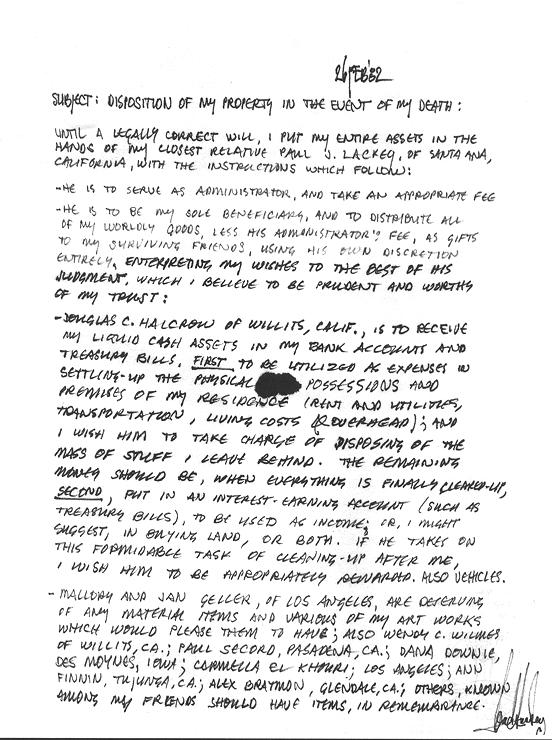 26FEB'82
SUBJECT: DISPOSITION OF MY PROPERTY IN THE EVENT OF MY DEATH:
UNTIL A LEGALLY CORRECT WILL, I PUT MY ENTIRE ASSETS IN THE
HANDS OF MY CLOSEST RELATIVE PAUL J. LACKEY, OF SANTA ANA,
CALIFORNIA, WITH THE INSTRUCTIONS WHICH FOLLOW:
-HE IS TO SERVE AS ADMINISTRATOR, AND TAKE AN APPROPRIATE FEE
-HE IS TO BE MY SOLE BENEFICIARY, AND TO DISTRIBUTE ALL
OF MY WORLDLY GOODS, LESS HIS ADMINISTRATOR'S FEE, AS GIFTS
TO MY SURVIVING FRIENDS, USING HIS OWN DISCRETION
ENTIRELY, ENTERPRETING MY WISHES TO THE BEST OF HIS
JUDGMENT, WHICH I BELIEVE TO BE PRUDENT AND WORTHY
OF MY TRUST:
-DOUGLAS C. HALCROW OF WILLITS, CALIF., IS TO RECEIVE
MY LIQUID CASH ASSETS IN MY BANK ACCOUNTS AND
TREASURY BILLS, FIRST TO BE UTILIZED AS EXPENSES IN
SETTLING-UP THE PHYSICAL POSSESSIONS AND
PREMISES OF MY RESIDENCE (RENT AND UTILITIES,
TRANSPORTATION, LIVING COSTS (OVERHEAD); AND
I WISH HIM TO TAKE CHARGE OF DISPOSING OF THE
MASS OF STUFF I LEAVE BEHIND. THE REMAINING
MONEY SHOULD BE, WHEN EVERYTHING IS FINALLY CLEARED-UP,
SECOND, PUT IN AN INTEREST-EARNING ACCOUNT (SUCH AS
TREASURY BILLS), TO BE USED AS INCOME; OR, I MIGHT
SUGGEST, IN BUYING LAND, OR BOTH. IF HE TAKES ON
THIS FORMIDABLE TASK OF CLEANING-UP AFTER ME,
I WISH HIM TO BE APPROPRIATELY REWARDED. ALSO VEHICLES.
- MALLORY AND JAN GELLER, OF LOS ANGELES, ARE DESERVING
OF ANY MATERIAL ITEMS AND VARIOUS OF MY ART WORKS
WHICH WOULD PLEASE THEM TO HAVE; ALSO WENDY C. WILMES
OF WILLITS, CA.; PAUL SECORD, PASADENA, CA.; DANA DOWNIE,
DES MOYNES, IOWA; CARMELLA EL KHOURI; LOS ANGELES; ANN
FINNIN, TUJUNGA, CA.; ALEX BRATMON, GLENDALE, CA.; OTHERS, KNOWN
AMONG MY FRIENDS SHOULD HAVE ITEMS, IN REMEMBRANCE.